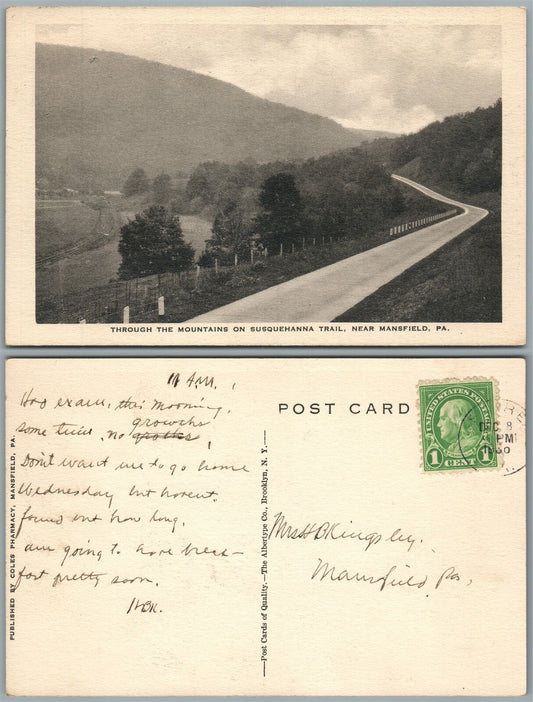 THROUGH THE MOUNTAINS ON SUSQUEHANNA TRAIL, NEAR MANSFIELD, PA.
11 A.M.
Had exam, this morning,
growths
some twin, no spotts
Don't want me to go home
Wednesday but havent
found out how long.
am going to have break-
fast pretty soon.
HBK.
PUBLISHED BY COLES PHARMACY, MANSFIELD, PA.
Post Cards of Quality.—The Albertype Co., Brooklyn, N. Y.
POST CARD
UNITED STATES POSTAGE
1 CENT 1
RE
DEC 8
PM
1930
Mrs H B Kingsley.
Mansfield, Pa,